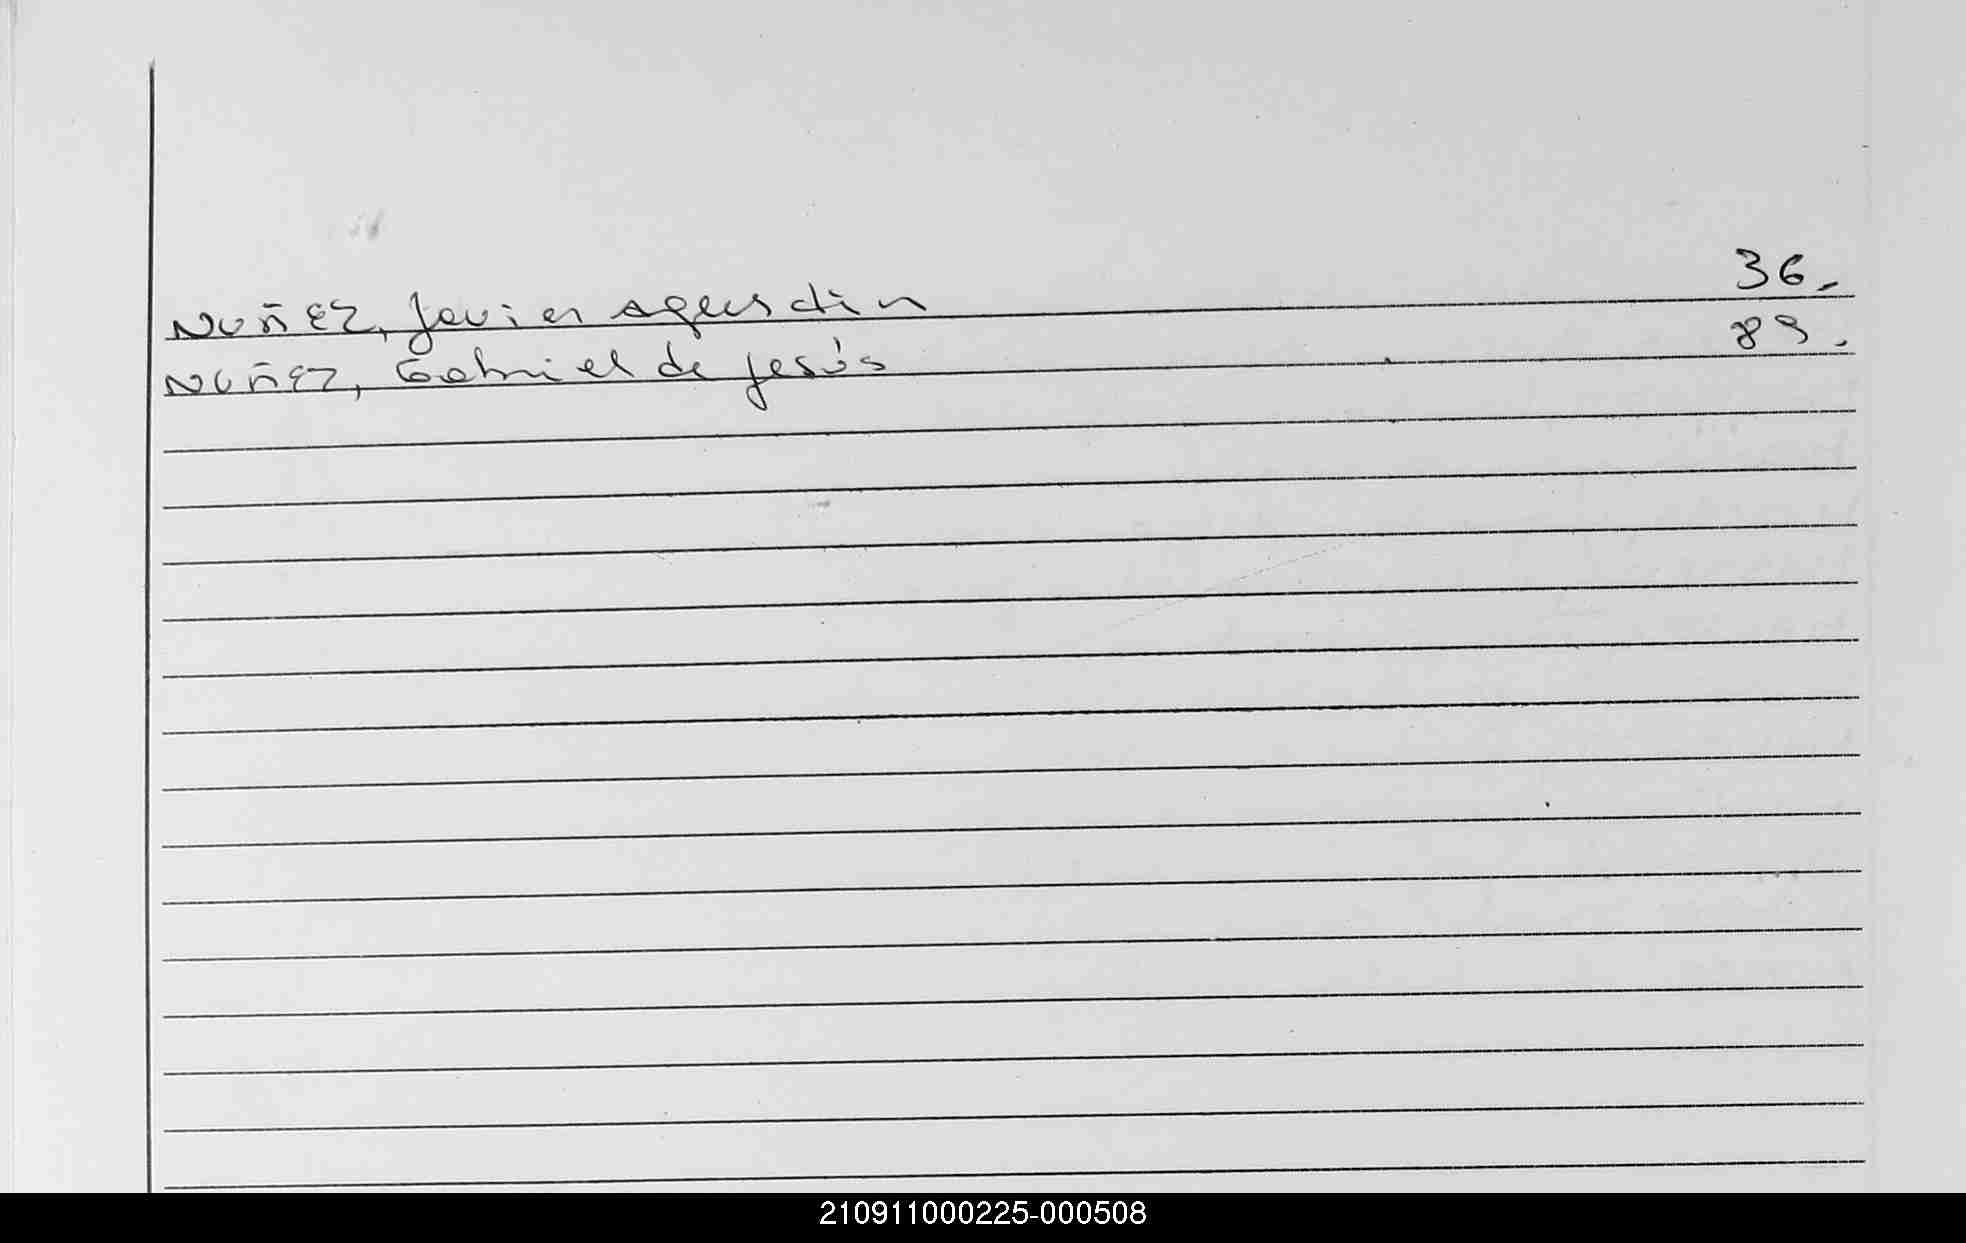 Nuñez, Javier Agustin 36.
Nuñez, Gabriel de Jesús 89.
210911000225-000508